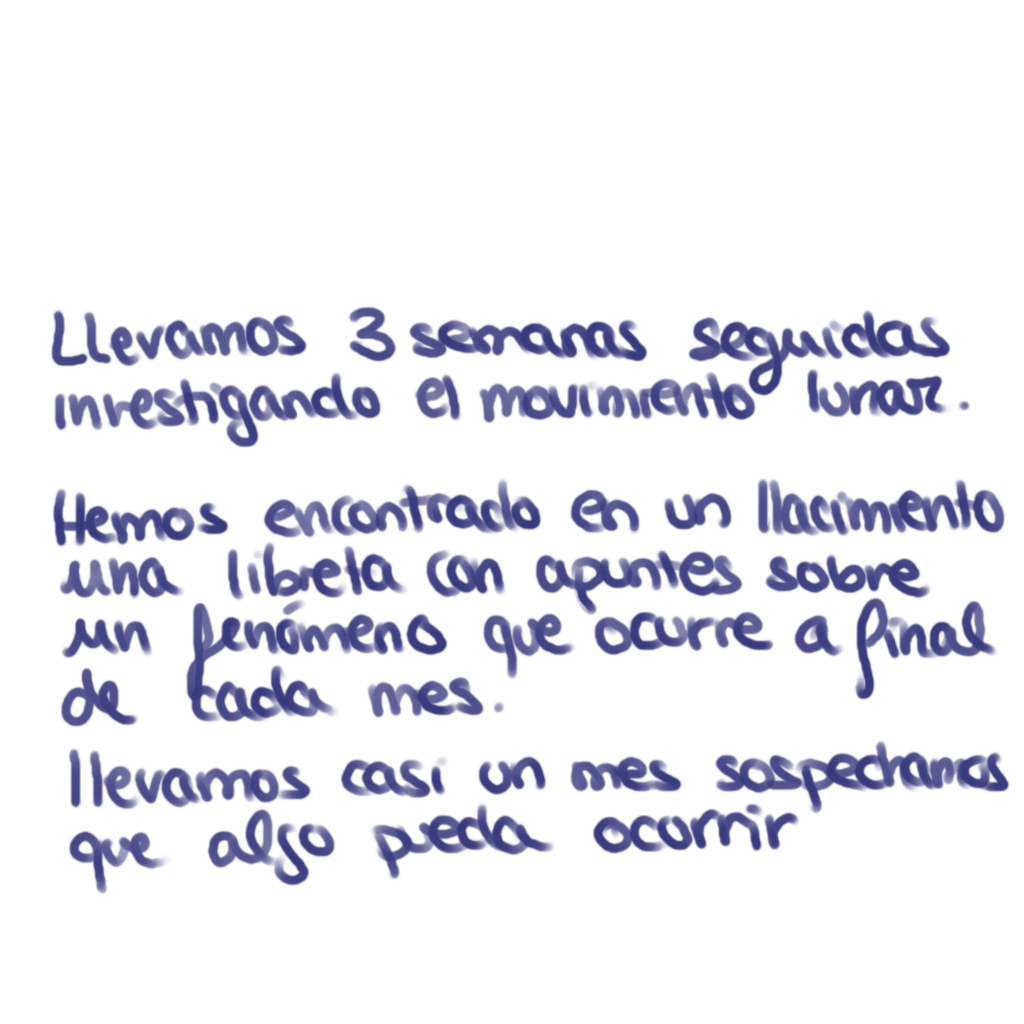 Llevamos 3 semanas seguidas
investigando el movimiento lunar.
Hemos encontrado en un llacimiento
una libreta con apuntes sobre
un fenómeno que ocurre a final
de cada mes.
llevamos casi un mes sospechamos
que algo pueda ocorrir